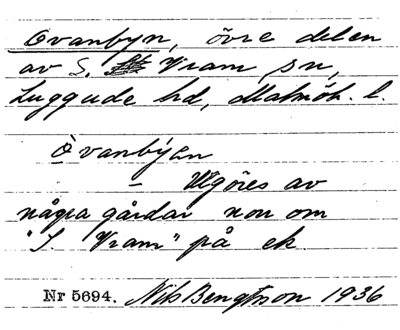 Ovanbyn, övre delen
av S. Vram sn,
Luggude hd, Malmöh. l.
Òvanbýen
– Utgöres av
några gårdar norr om
"S. Vram" på ek
Nr 5694. Nils Bengtsson 1936